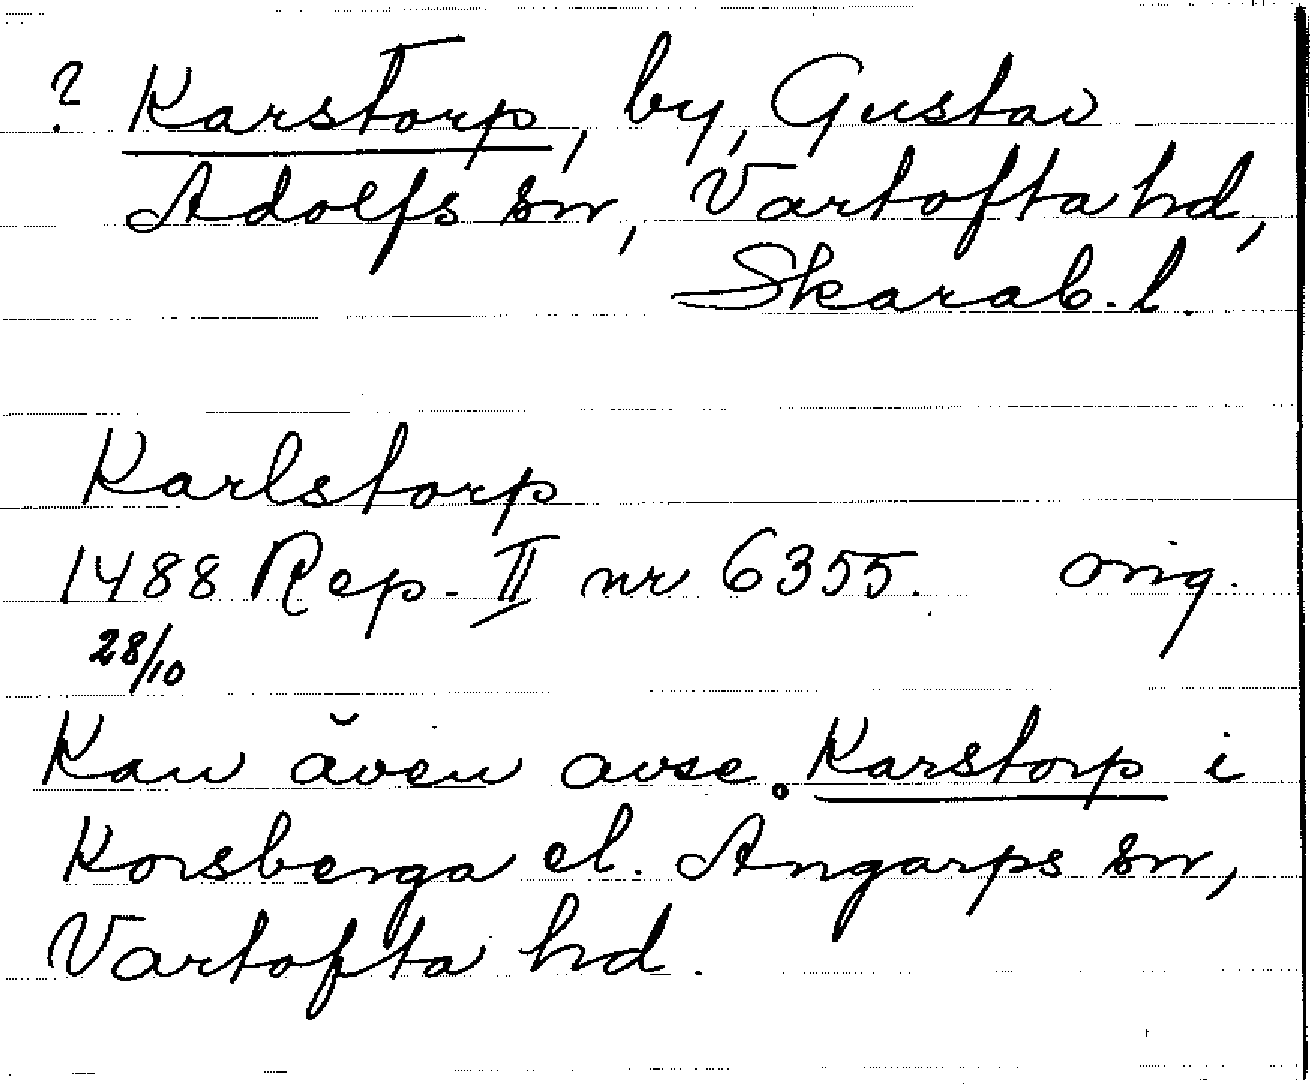 ? Karstorp, by, Gustav
Adolfs sn, Vartofta hd,
Skarab. l.
Karlstorp
1488 Rep. II nr 6355. orig.
28/10
Kan även avse Karstorp i
Korsberga el. Ångarps sn,
Vartofta hd.